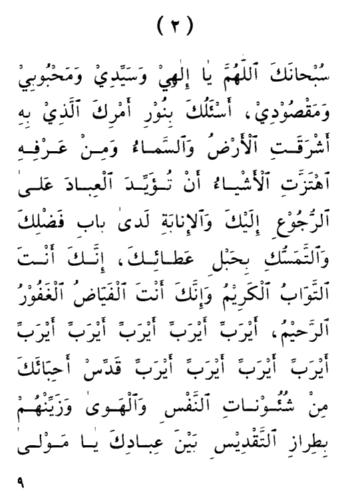 ( ٢ )
سُبْحانَكَ ٱللَّهُمَّ يٰا إِلٰهِيْ وَسَيِّدِيْ وَمَحْبُوبِيْ
وَمَقْصُودِيْ، أَسْئَلُكَ بِنُوْرِ أَمْرِكَ ٱلَّذِيْ بِهِ
أَشْرَقَتِ ٱلْأَرْضُ وَٱلسَّماءُ وَمِنْ عَرْفِهِ
ٱهْتَزَّتِ ٱلْأَشْياءُ أَنْ تُؤَيِّدَ ٱلْعِبادَ عَلىٰ
ٱلرُّجُوْعِ إِلَيْكَ وَٱلإِنابَةِ لَدىٰ بابِ فَضْلِكَ
وَٱلتَّمَسُّكِ بِحَبْلِ عَطائِكَ، إِنَّكَ أَنْتَ
ٱلتَّوّابُ ٱلْكَرِيْمُ وَإِنَّكَ أَنْتَ ٱلْفَيّاضُ ٱلْغَفُوْرُ
ٱلرَّحِيْمُ، أَيْرَبِّ أَيْرَبِّ أَيْرَبِّ أَيْرَبِّ أَيْرَبِّ أَيْرَبِّ
أَيْرَبِّ أَيْرَبِّ أَيْرَبِّ أَيْرَبِّ قَدِّسْ أَحِبّائَكَ
مِنْ شُئُوناتِ ٱلنَّفْسِ وَٱلْهَوىٰ وَزَيِّنْهُمْ
بِطِرازِ ٱلتَّقْدِيْسِ بَيْنَ عِبادِكَ يٰا مَوْلىٰ
٩